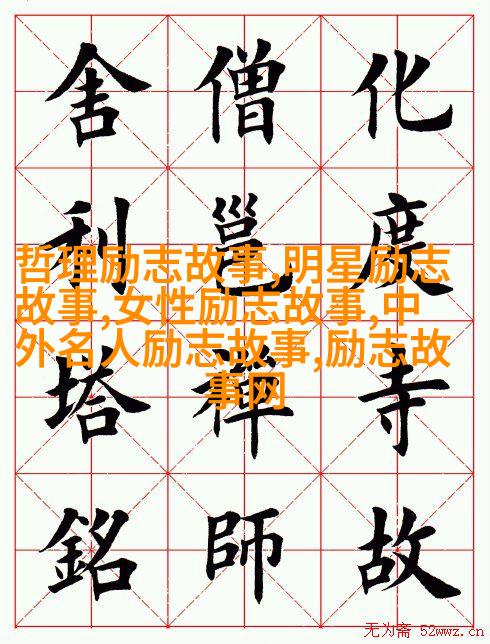 化度寺故
僧邕禪師
舍利塔銘
哲理励志故事,明星励志
故事,女性励志故事,中
外名人励志故事,励志故
事网
无为斋 52wwz.cn